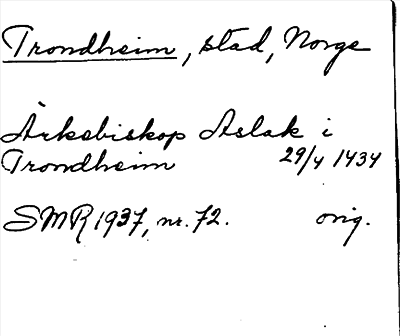 Trondheim, stad, Norge
Ärkebiskop Aslak i
Trondheim 29/4 1434
SMR 1937, nr. 72. orig.